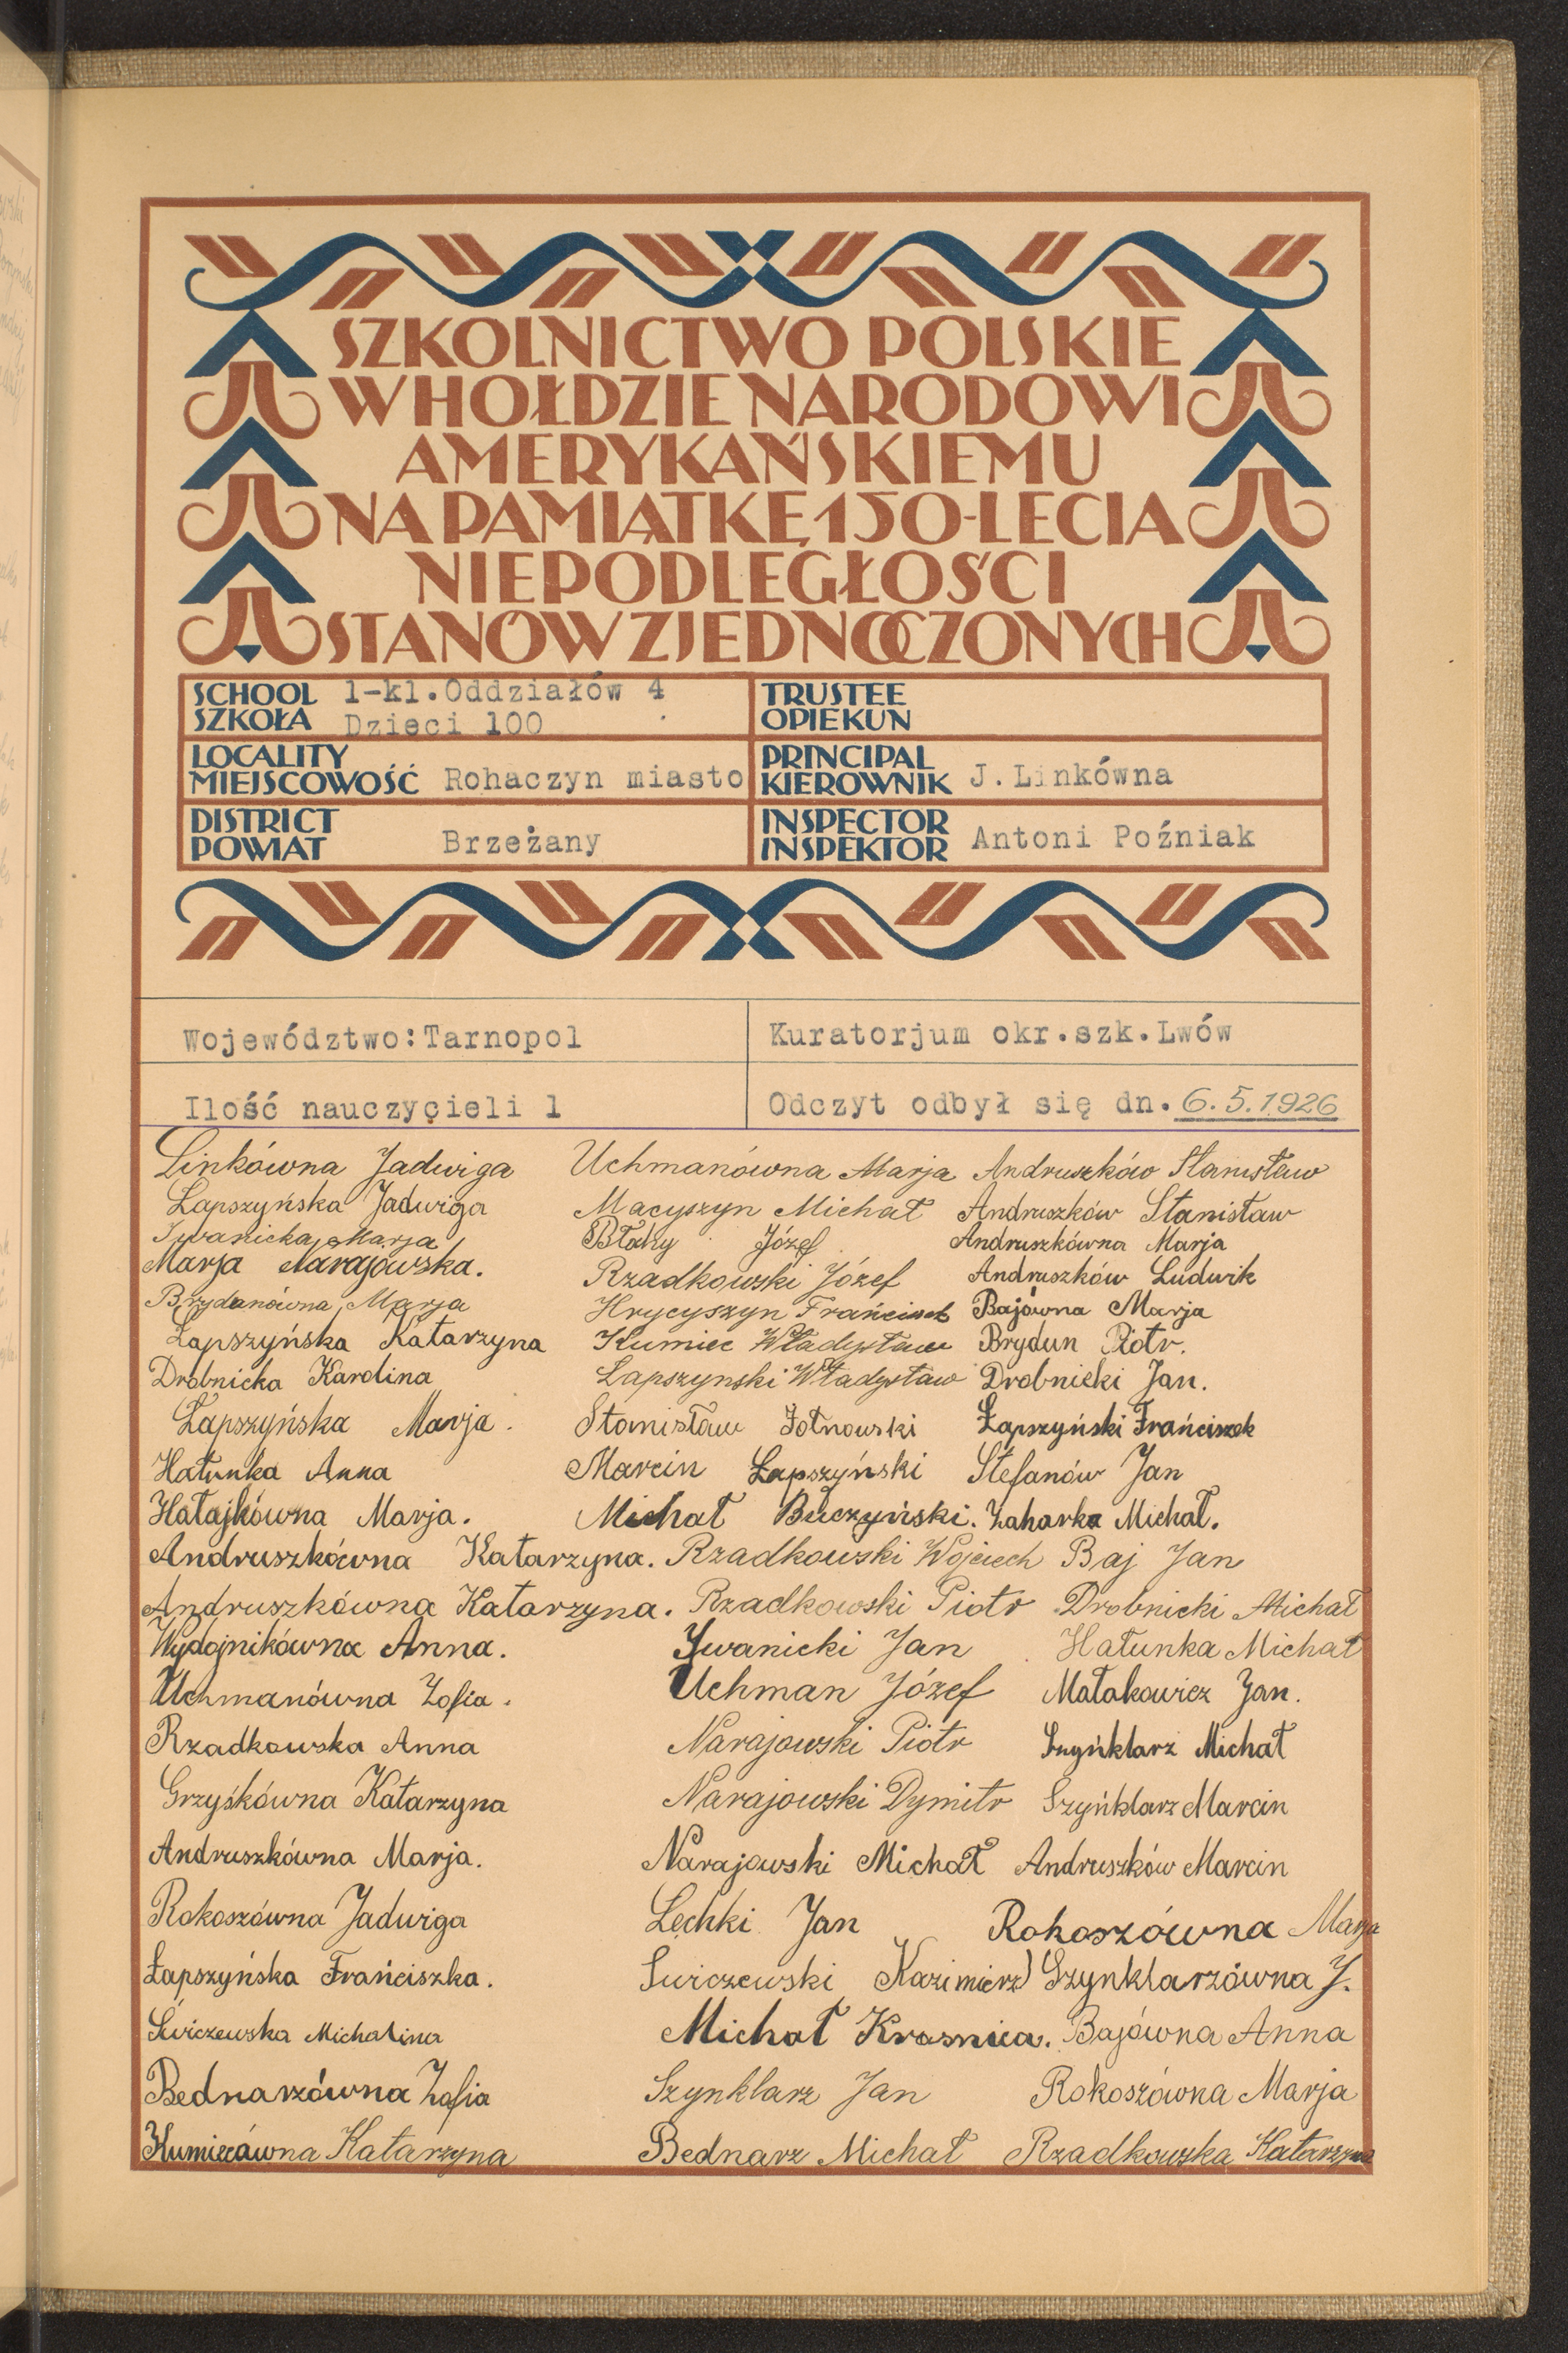 SZKOLNICTWO POLSKIE
W HOŁDZIE NARODOWI
AMERYKAŃSKIEMU
NA PAMIĄTKĘ 150-LECIA
NIEPODLEGŁOŚCI
STANÓW ZJEDNOCZONYCH
SCHOOL
SZKOŁA
1-kl. Oddziałów 4
Dzieci 100
TRUSTEE
OPIEKUN
LOCALITY
MIEJSCOWOŚĆ
Rohaczyn miasto
PRINCIPAL
KIEROWNIK
J. Linkówna
DISTRICT
POWIAT
Brzeżany
INSPECTOR
INSPEKTOR
Antoni Poźniak
Województwo: Tarnopol
Kuratorjum okr. szk. Lwów
Ilość nauczycieli 1
Odczyt odbył się dn. 6.5.1926
Linkówna Jadwiga
Łapszyńska Jadwiga
Iwanicka Marja
Marja Narajowska.
Brydanówna Marja
Łapszyńska Katarzyna
Drobnicka Karolina
Łapszyńska Marja.
Hałunka Anna
Hałajkówna Marja.
Andruszkówna Katarzyna.
Andruszkówna Katarzyna.
Wydojnikówna Anna.
Uchmanówna Zofia.
Rzadkowska Anna
Grzyśkówna Katarzyna
Andruszkówna Marja.
Rokoszówna Jadwiga
Łapszyńska Frańciszka.
Świczewska Michalina
Bednarzówna Zofia
Kumiecówna Katarzyna
Uchmanówna Marja
Macyszyn Michał
Błahy Józef
Rzadkowski Józef
Hrycyszyn Frańciszek
Kumiec Władysław
Łapszynski Władysław
Stanisław Żołnowski
Marcin Łapszyński
Michał Buczyński.
Rzadkowski Wojciech
Rzadkowski Piotr
Iwanicki Jan
Uchman Józef
Narajowski Piotr
Narajowski Dymitr
Narajowski Michał
Lechki Jan
Świczewski Kazimierz
Michał Krasnica.
Szynklarz Jan
Bednarz Michał
Andruszków Stanisław
Andruszków Stanisław
Andruszkówna Marja
Andruszków Ludwik
Bajówna Marja
Brydun Piotr.
Drobnicki Jan.
Łapszyński Frańciszek
Stefanów Jan
Zaharka Michał.
Baj Jan
Drobnicki Michał
Hałunka Michał
Małakowicz Jan.
Szyńklarz Michał
Szyńklarz Marcin
Andruszków Marcin
Rokoszówna Marja
Szynklarzówna J.
Bajówna Anna
Rokoszówna Marja
Rzadkowska Katarzyna